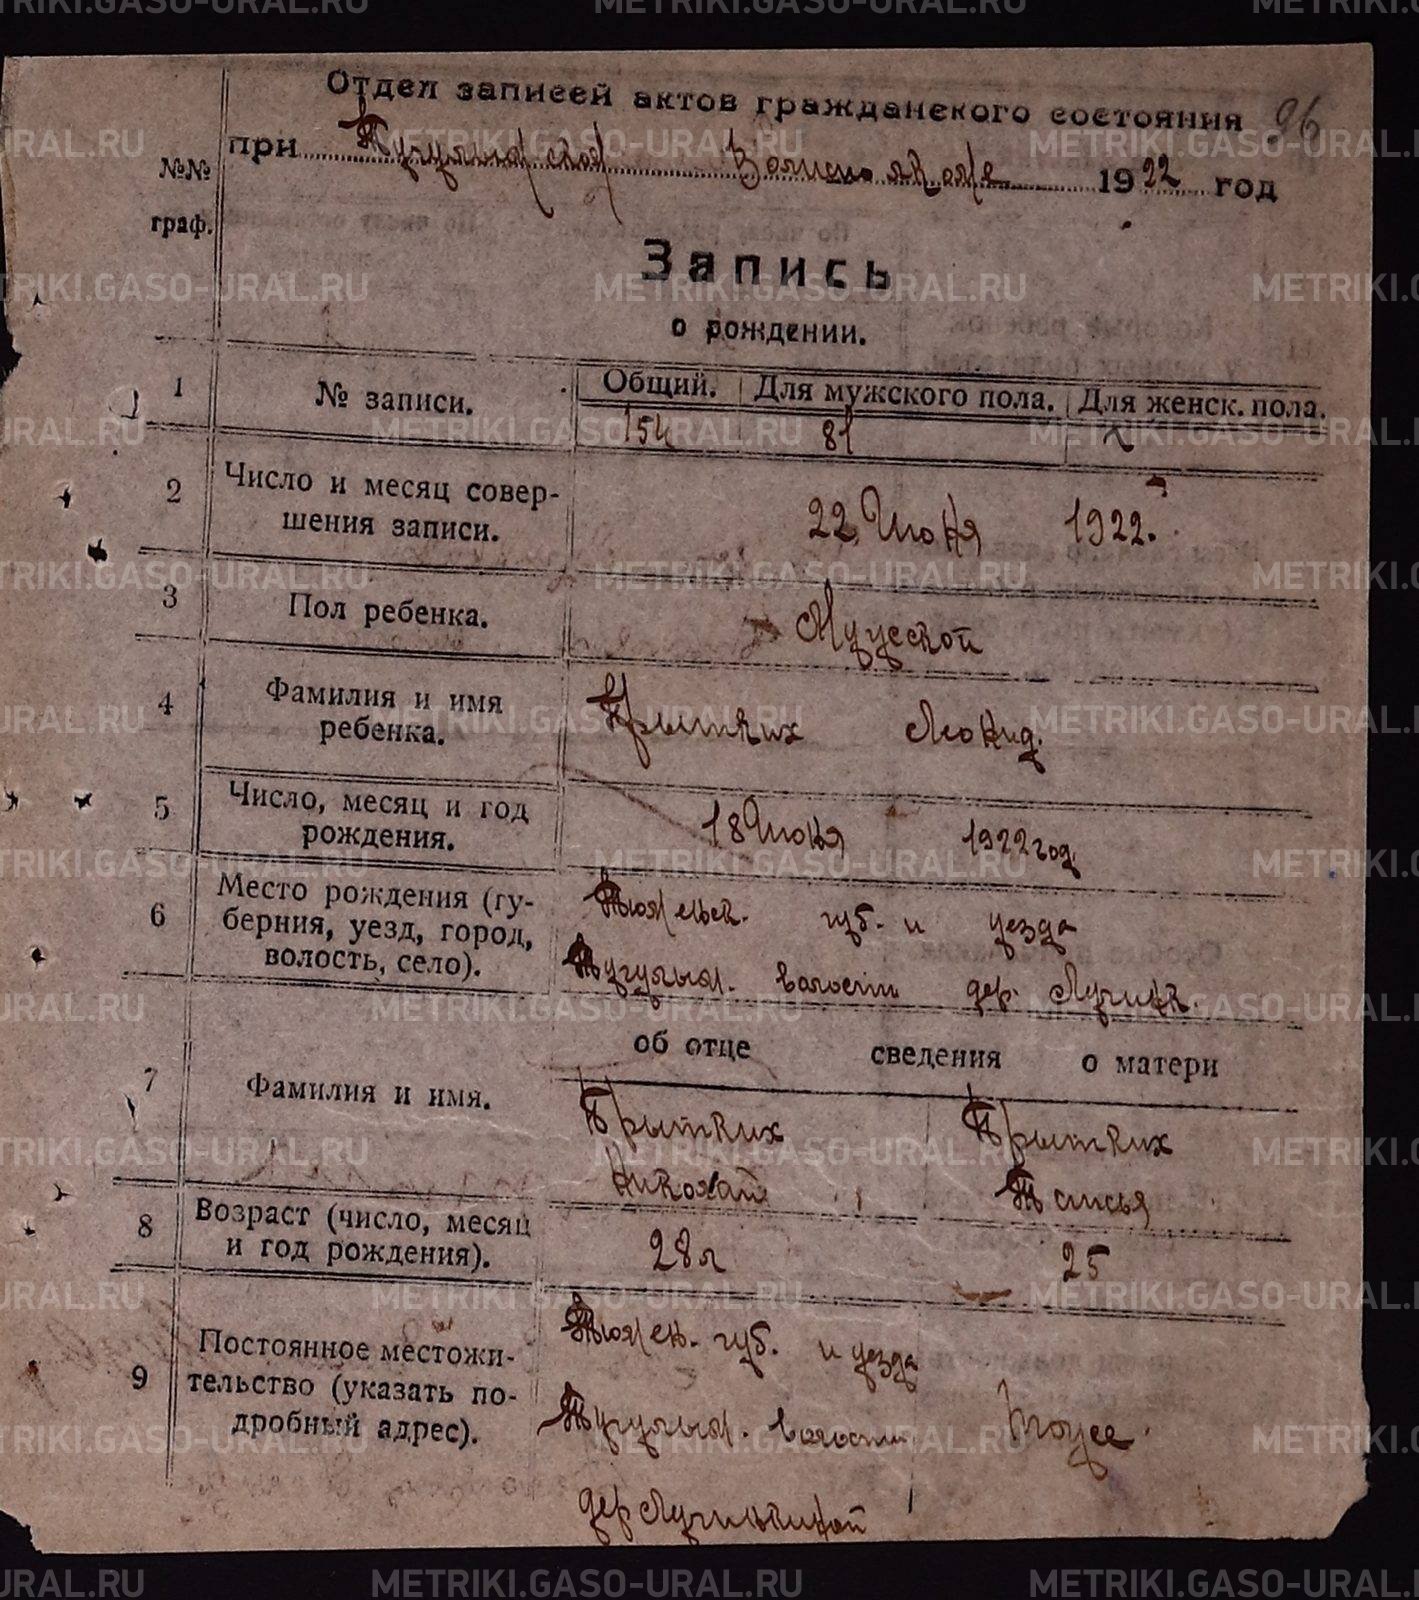 96
Отдел записей актов гражданского состояния
при Тугулымской Волисполкоме 1922 год
№№ граф.
Запись
о рождении.
1 № записи. Общий. Для мужского пола. Для женск. пола.
154 81
2 Число и месяц совер-
шения записи. 22 Июня 1922.
3 Пол ребенка. Мужской
4 Фамилия и имя
ребенка. Прытких Леонид.
5 Число, месяц и год
рождения. 18 Июня 1922 год
6 Место рождения (гу-
берния, уезд, город,
волость, село).
Тюменск. губ. и уезда
Тугулым. волости дер.
об отце сведения о матери
7 Фамилия и имя.
Прытких Прытких
Николай Таисья
8 Возраст (число, месяц
и год рождения). 28 л 25
9 Постоянное местожи-
тельство (указать по-
дробный адрес).
Тюмен. губ. и уезда
Тугулым. волости тоже
дер
METRIKI.GASO-URAL.RU